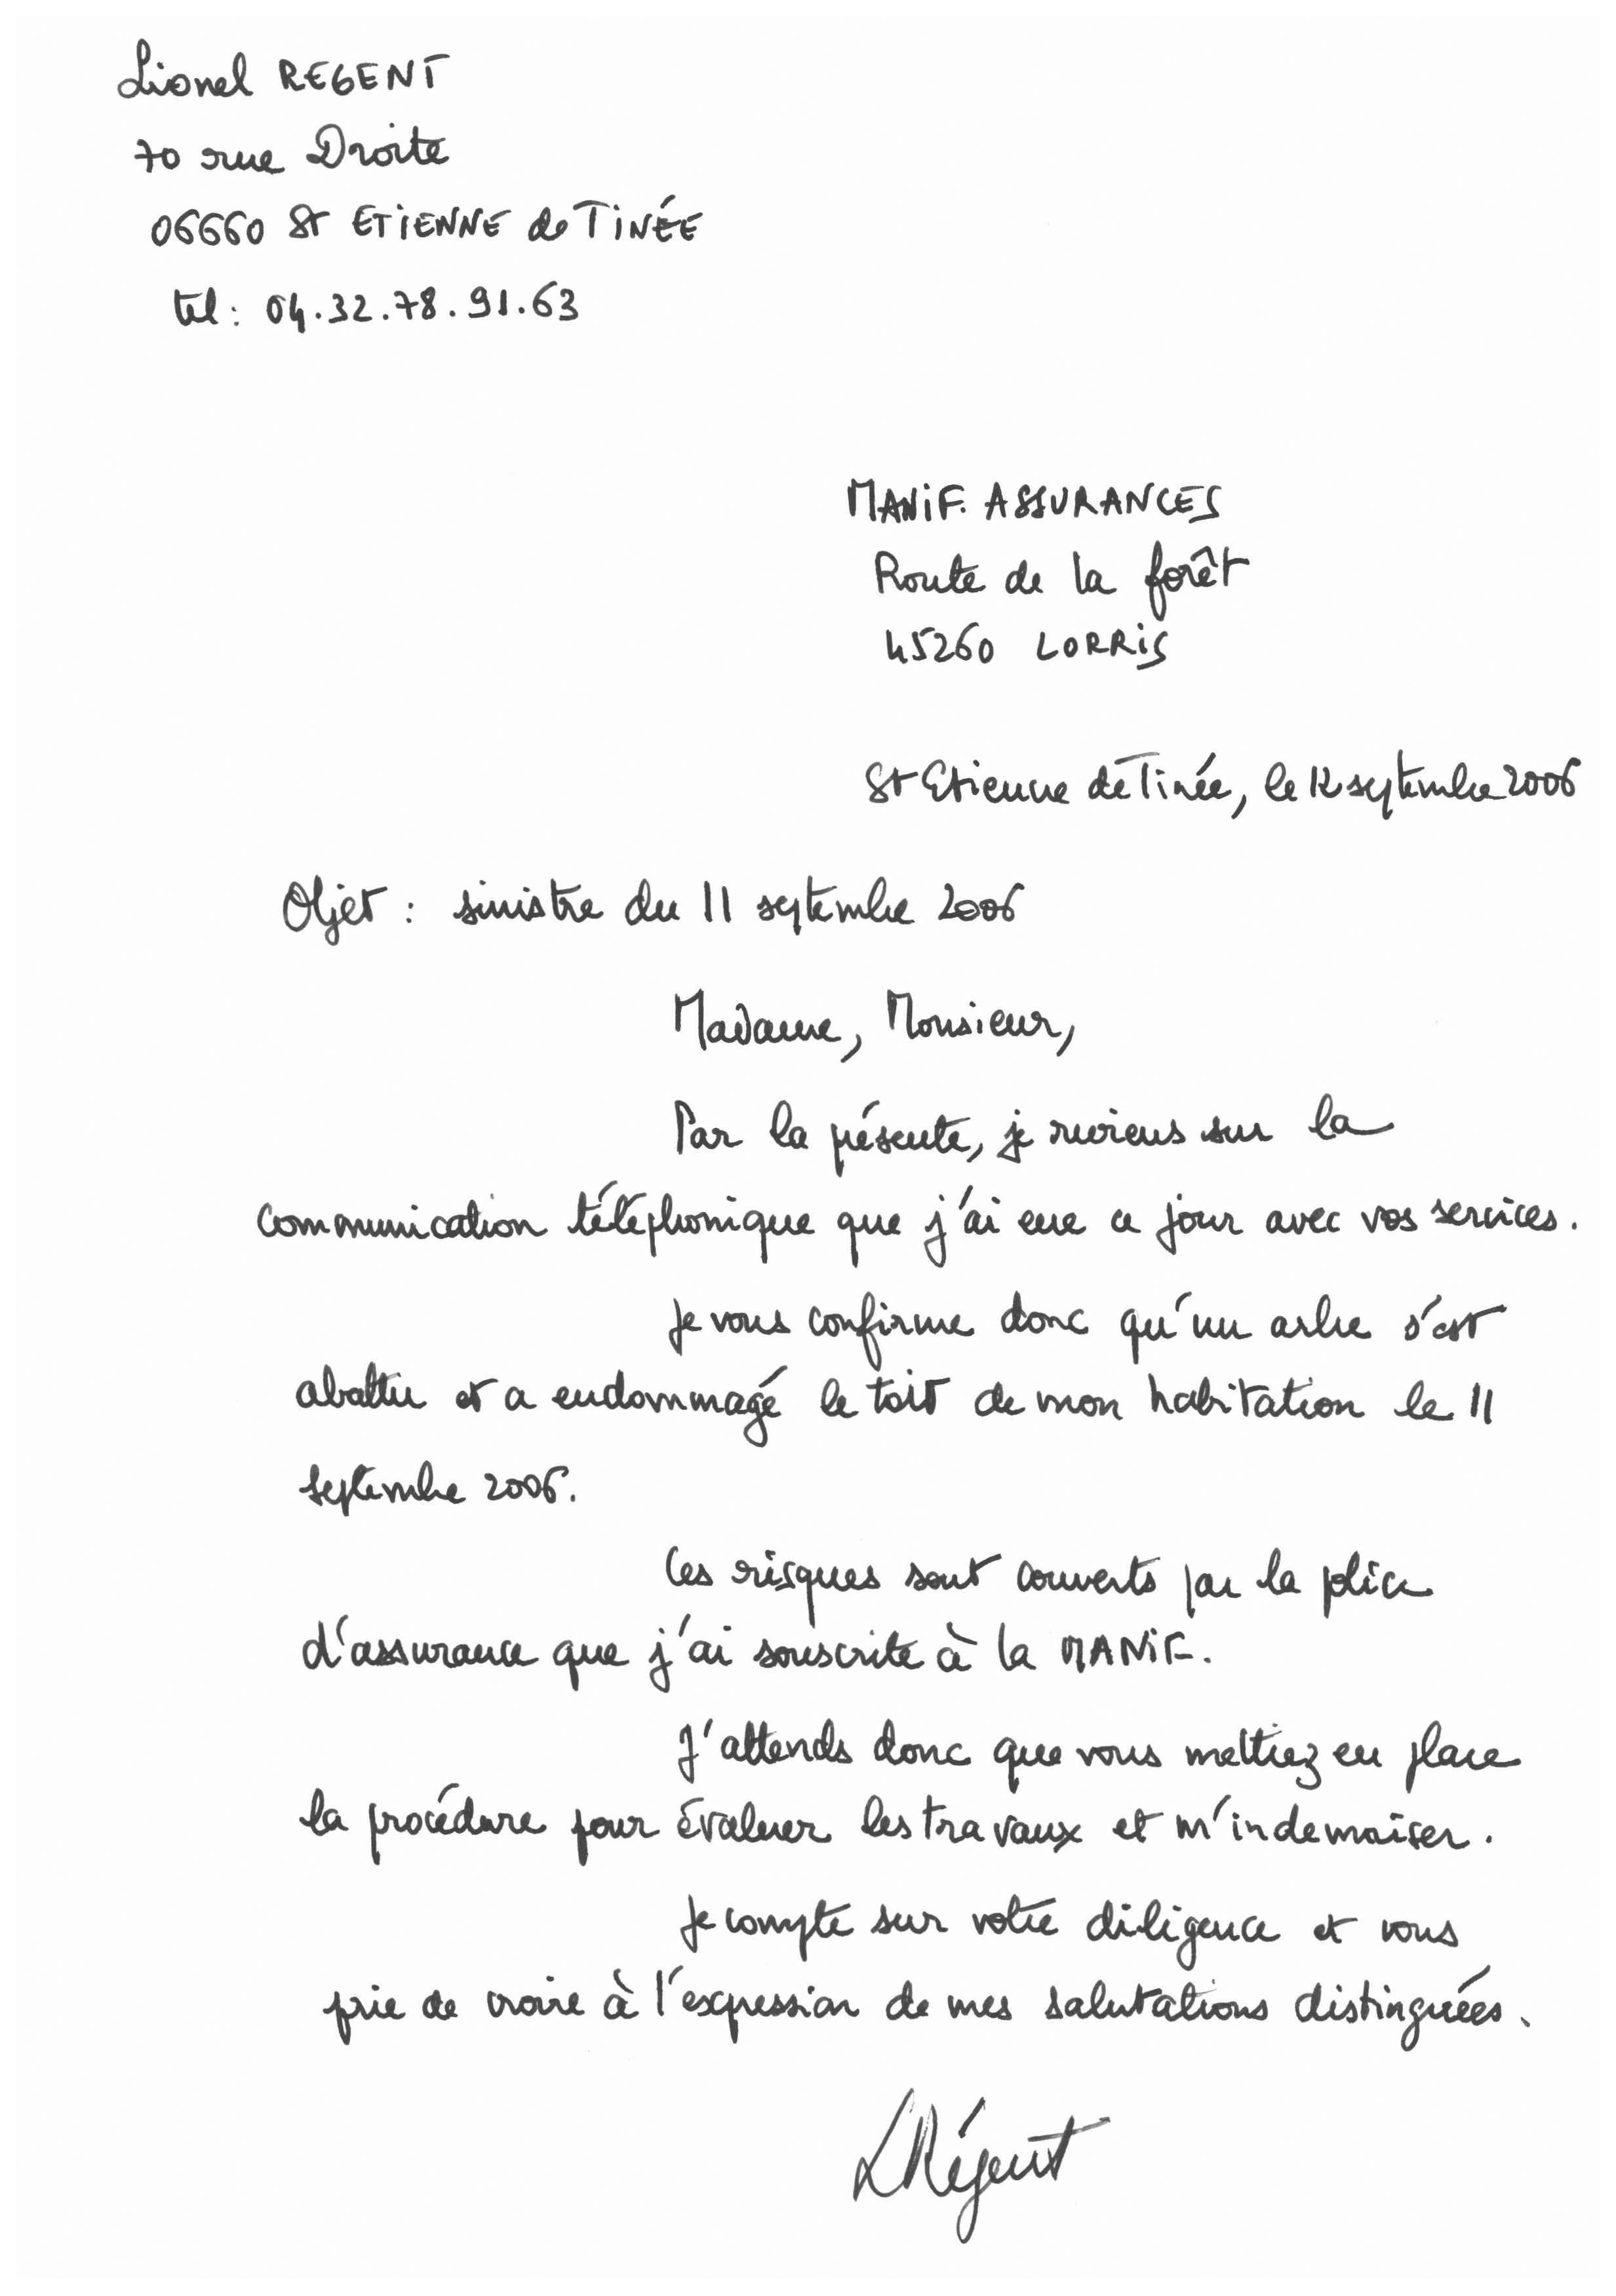 Lionel REGENT
70 rue Droite
06660 St ETIENNE de TINÉE
tél : 04.32.78.91.63
MANIF. ASSURANCES
Route de la forêt
45260 LORRIS
St Etienne de Tinée, le 12 septembre 2006
Objet : sinistre du 11 septembre 2006
Madame, Monsieur,
Par la présente, je reviens sur la
communication téléphonique que j'ai eue ce jour avec vos services.
Je vous confirme donc qu'un arbre s'est
abattu et a endommagé le toit de mon habitation le 11
septembre 2006.
Ces risques sont couverts par la police
d'assurance que j'ai souscrite à la MANIF.
J'attends donc que vous mettiez en place
la procédure pour évaluer les travaux et m'indemniser.
Je compte sur votre diligence et vous
prie de croire à l'expression de mes salutations distinguées.
LRégent